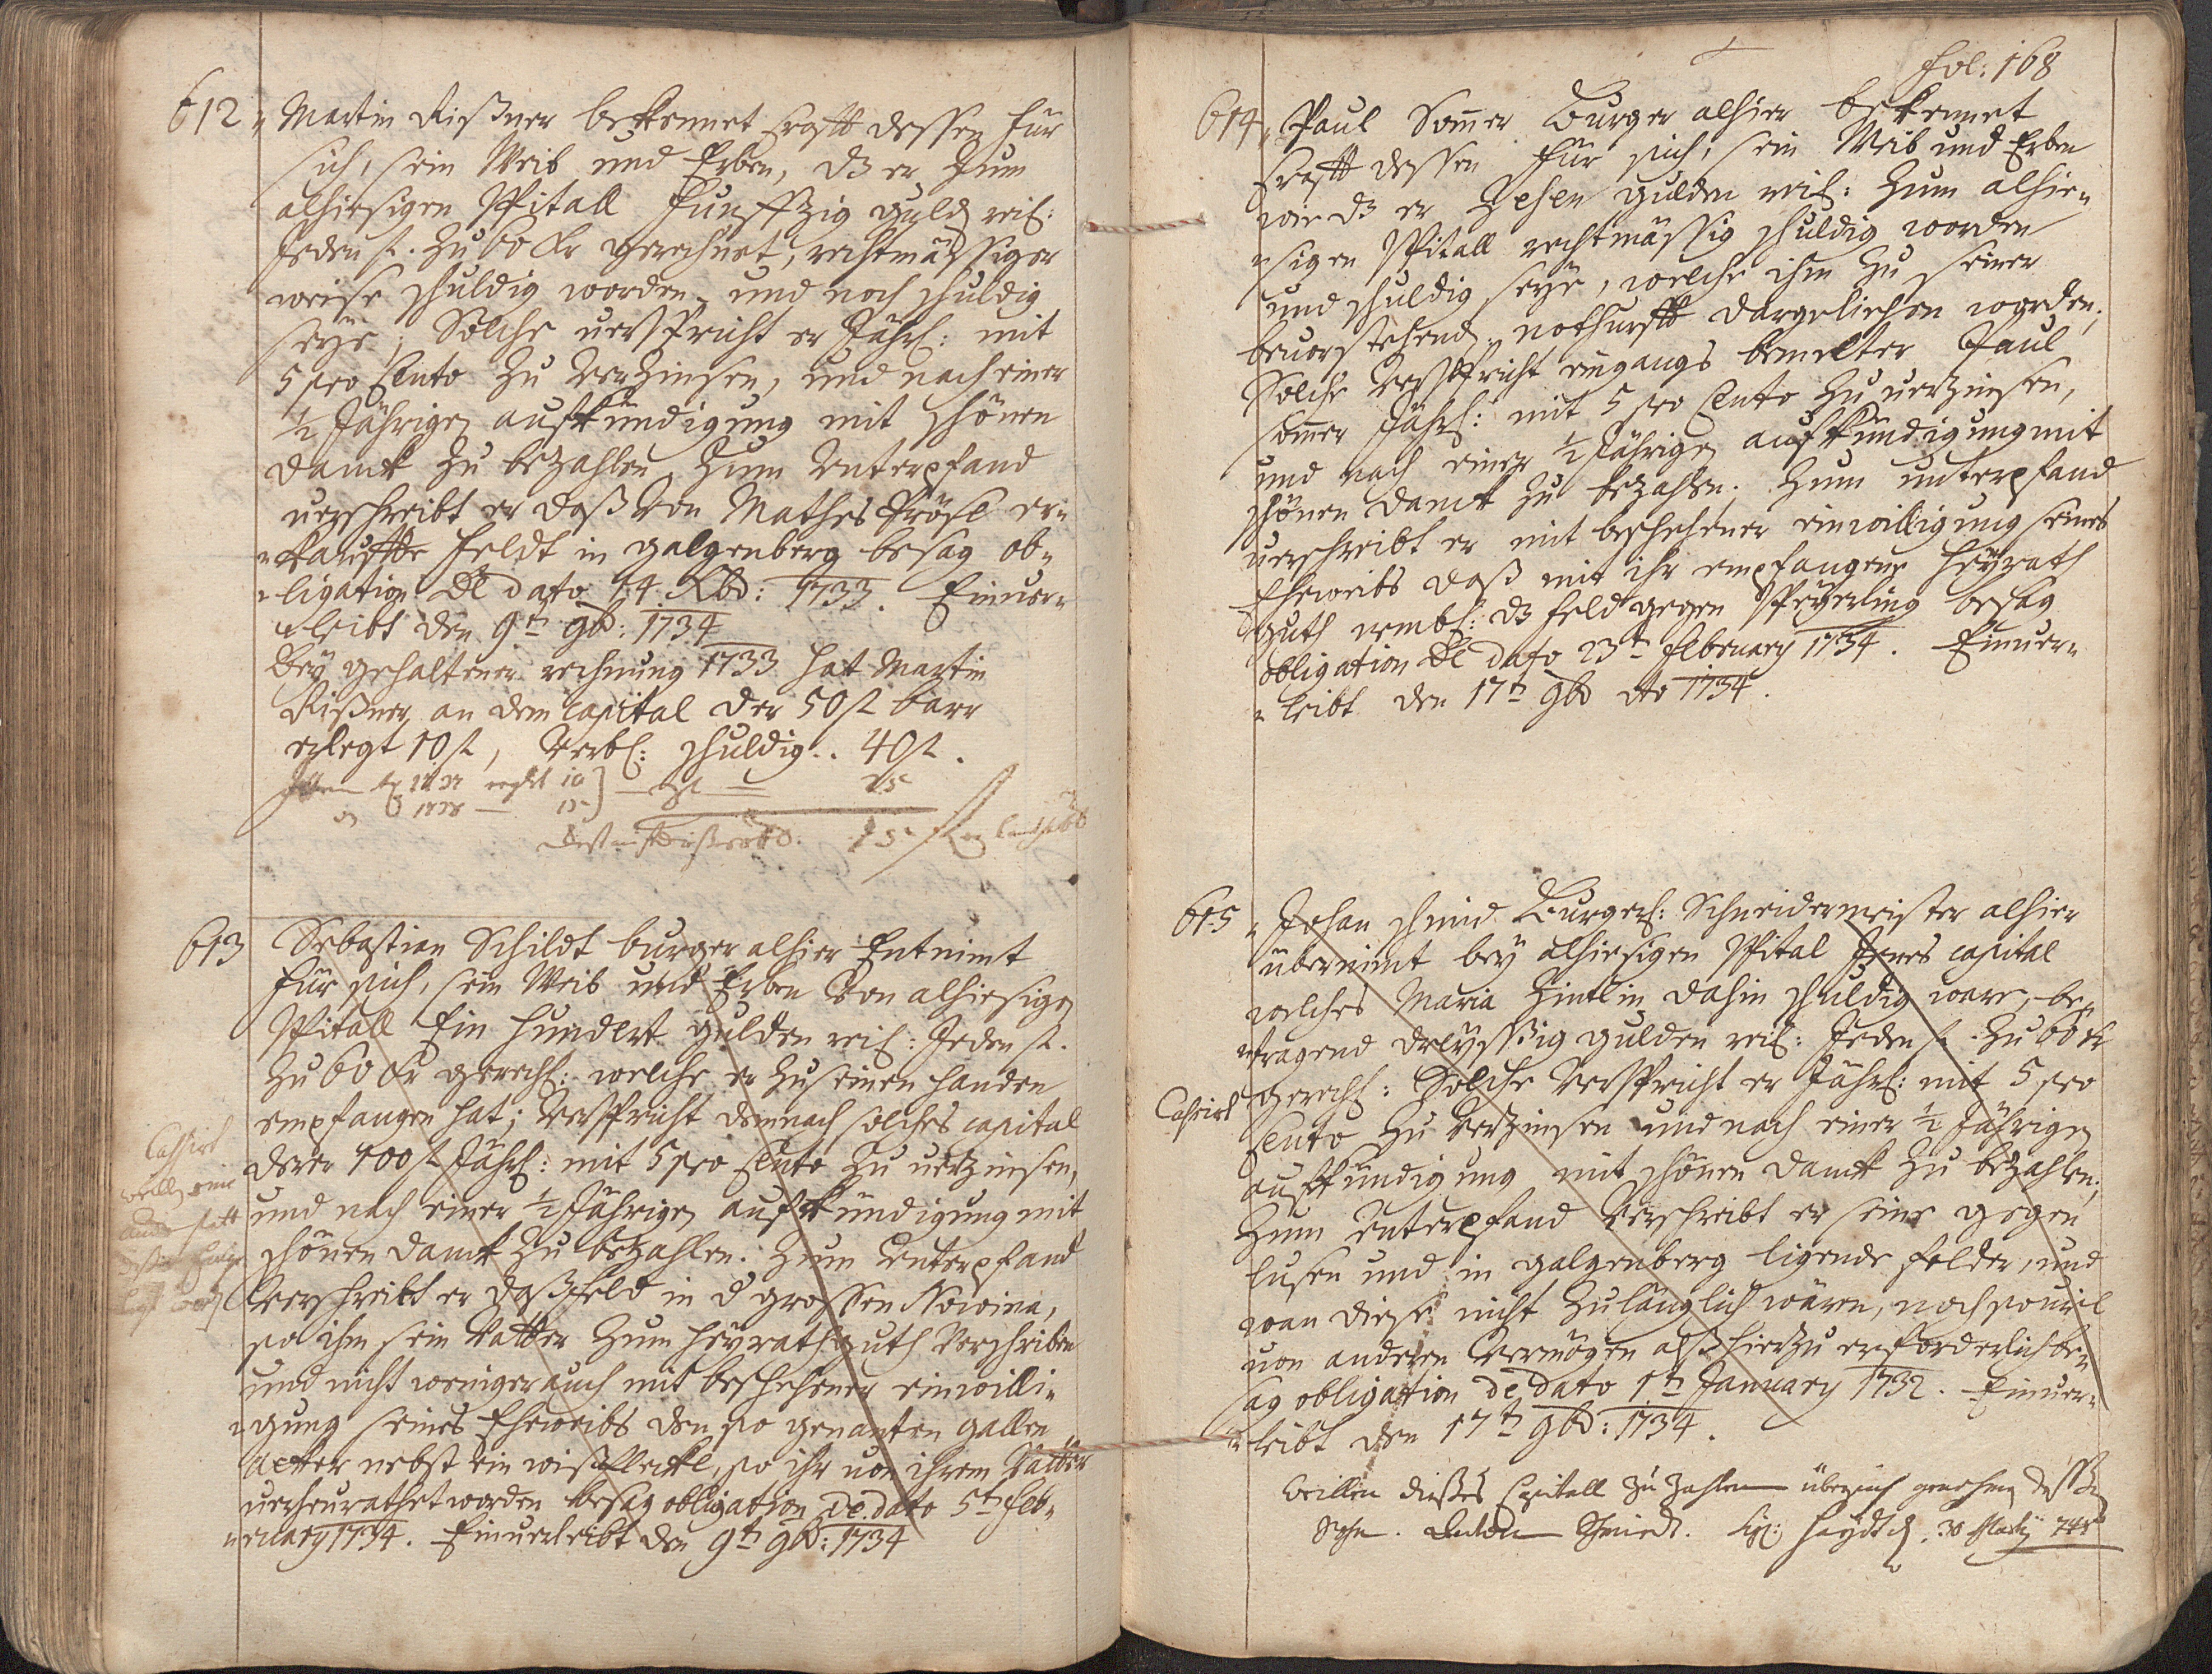 612
Martin Rißner bekennet krafft dessen für
sich, sein Weib und Erben, dz er zum
alhiesigen Spitall Funfftzig guld rei:
Jeden fl. zu 60 Kr gerechnet, rechtmässiger
weise schuldig worden und noch schuldig
seÿe, Solche verspricht er Jährl: mit
5 pro Cento zu Verzinsen, und nach einer
½ Jährigen aufkündigung mit schönen
danck zu bezahlen, Zum Unterpfand
verschreibt er daß von Mathes Prösl er=
=kauffte Feldt in galgenberg besag ob=
=ligation De dato 14 Xbd: 1733. Einver=
=leibt den 9tn 9bd: 1734
Beÿ gehaltener rechnung 1733 hat Martin
Rißner an dem Capital der 50 fl barr
erlegt 10 fl, Verbl: schuldig.. 40 fl.
10
1738 — 15 25
15
613
Sebastian Schildt burger alhier Entnimt
für sich, sein Weib und Erben Von alhiesigen
Spitall Ein hundert gulden rei: Jeden fl.
zu 60 Kr gerech: welche er zu seinen handen
empfangen hat; Verspricht demnach solches capital
derer 100 fl Jährl: mit 5 pro Cento zu verzinsen,
und nach einer ½ Jährigen aufkündigung mit
schönen danck zu bezahlen. Zum Unterpfand
Verschreibt er daß Feld in d grossen Nowina,
so ihm sein Vatter zum heyrathguth Verschriben
und nicht weniger auch mit beschehener einwilli=
=gung seines Eheweibs den so genanten gallen
Acker nebst ein wißfleckl, so ihr von ihrem Vatter
verheurathet worden besag obligation de dato 5tn Feb=
=ruary 1734. Einverleibt den 9tn 9bd: 1734
Cassirt
weillen eine
fol: 168
614
Paul Somer Burger alhier bekennet
krafft dessen für sich, sein Weib und Erben
wie dz er Zehen gulden rei: zum alhie=
=sigen Spitall rechtmässig schuldig worden
und schuldig seÿe, welche ihm zu seiner
bevorstehend nothurfft dargeliehen worden;
Solche Verspricht eingangs bemelter Paul
Somer Jährl: mit 5 pro Cento zu verzinsen,
und nach einer ½ Jährigen aufkündigung mit
schönen danck zu bezahlen. Zum unterpfand
verschreibt er mit beschehener einwilligung seines
Eheweibs daß mit ihr empfangene heÿrath
guth nembl: dz Feld gegen Speÿerling besag
obligation De dato 23tn February 1734. Einver=
=leibt den 17tn 9bd ao 1734.
615
Johan Schmid Burgerl: Schneidermeister alhier
übernimt beÿ alhiesigen Spital Jenes capital
welches Maria Hintlin dahin schuldig ware, be=
=tragend dreÿssig gulden rei: Jeden fl. zu 60 Kr
gerech: Solche Verspricht er Jährl: mit 5 pro
Cento zu Verzinsen und nach einer ½ Jährigen
aufkündigung mit schönen danck zu bezahlen;
Zum Unterpfand Verschreibt er seine gegen
Lusen und in galgenberg ligende Felder, und
wan diese nicht zulänglich wären, noch so viel
von anderen Vermögen alß hierzu erforderlich be=
sag obligation de dato 1tn January 1732. Einver=
=leibt den 17tn 9bd: 1734.
Cassirt
Weillen dießes Capitall zu zahlen über sich genohmen dessen
Sohn. Schmidt. Sig: Haÿdt d. 30 748